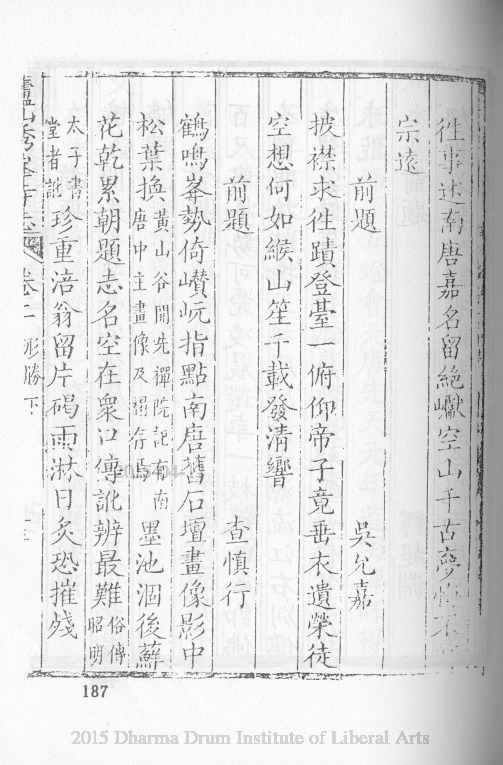 往事述南唐嘉名留絕巘空山千古夢
宗遠
前題 吳允嘉
披襟求往蹟登臺一俯仰帝子竟垂衣遺榮徒
空想何如緱山笙千載發清響
前題 查慎行
鶴鳴峯勢倚巑岏指點南唐舊石壇畫像影中
松葉換黃山谷開先禪院記有南唐中主畫像及 墨池涸後蘚
花乾累朝題志名空在衆口傳訛辨最難俗傳昭明
太子書堂者訛珍重涪翁留片碣雨淋日炙恐摧殘
廬山秀峯寺志 卷二 形勝下
187
2015 Dharma Drum Institute of Liberal Arts